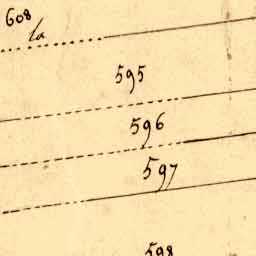 608
la
595
596
597
598